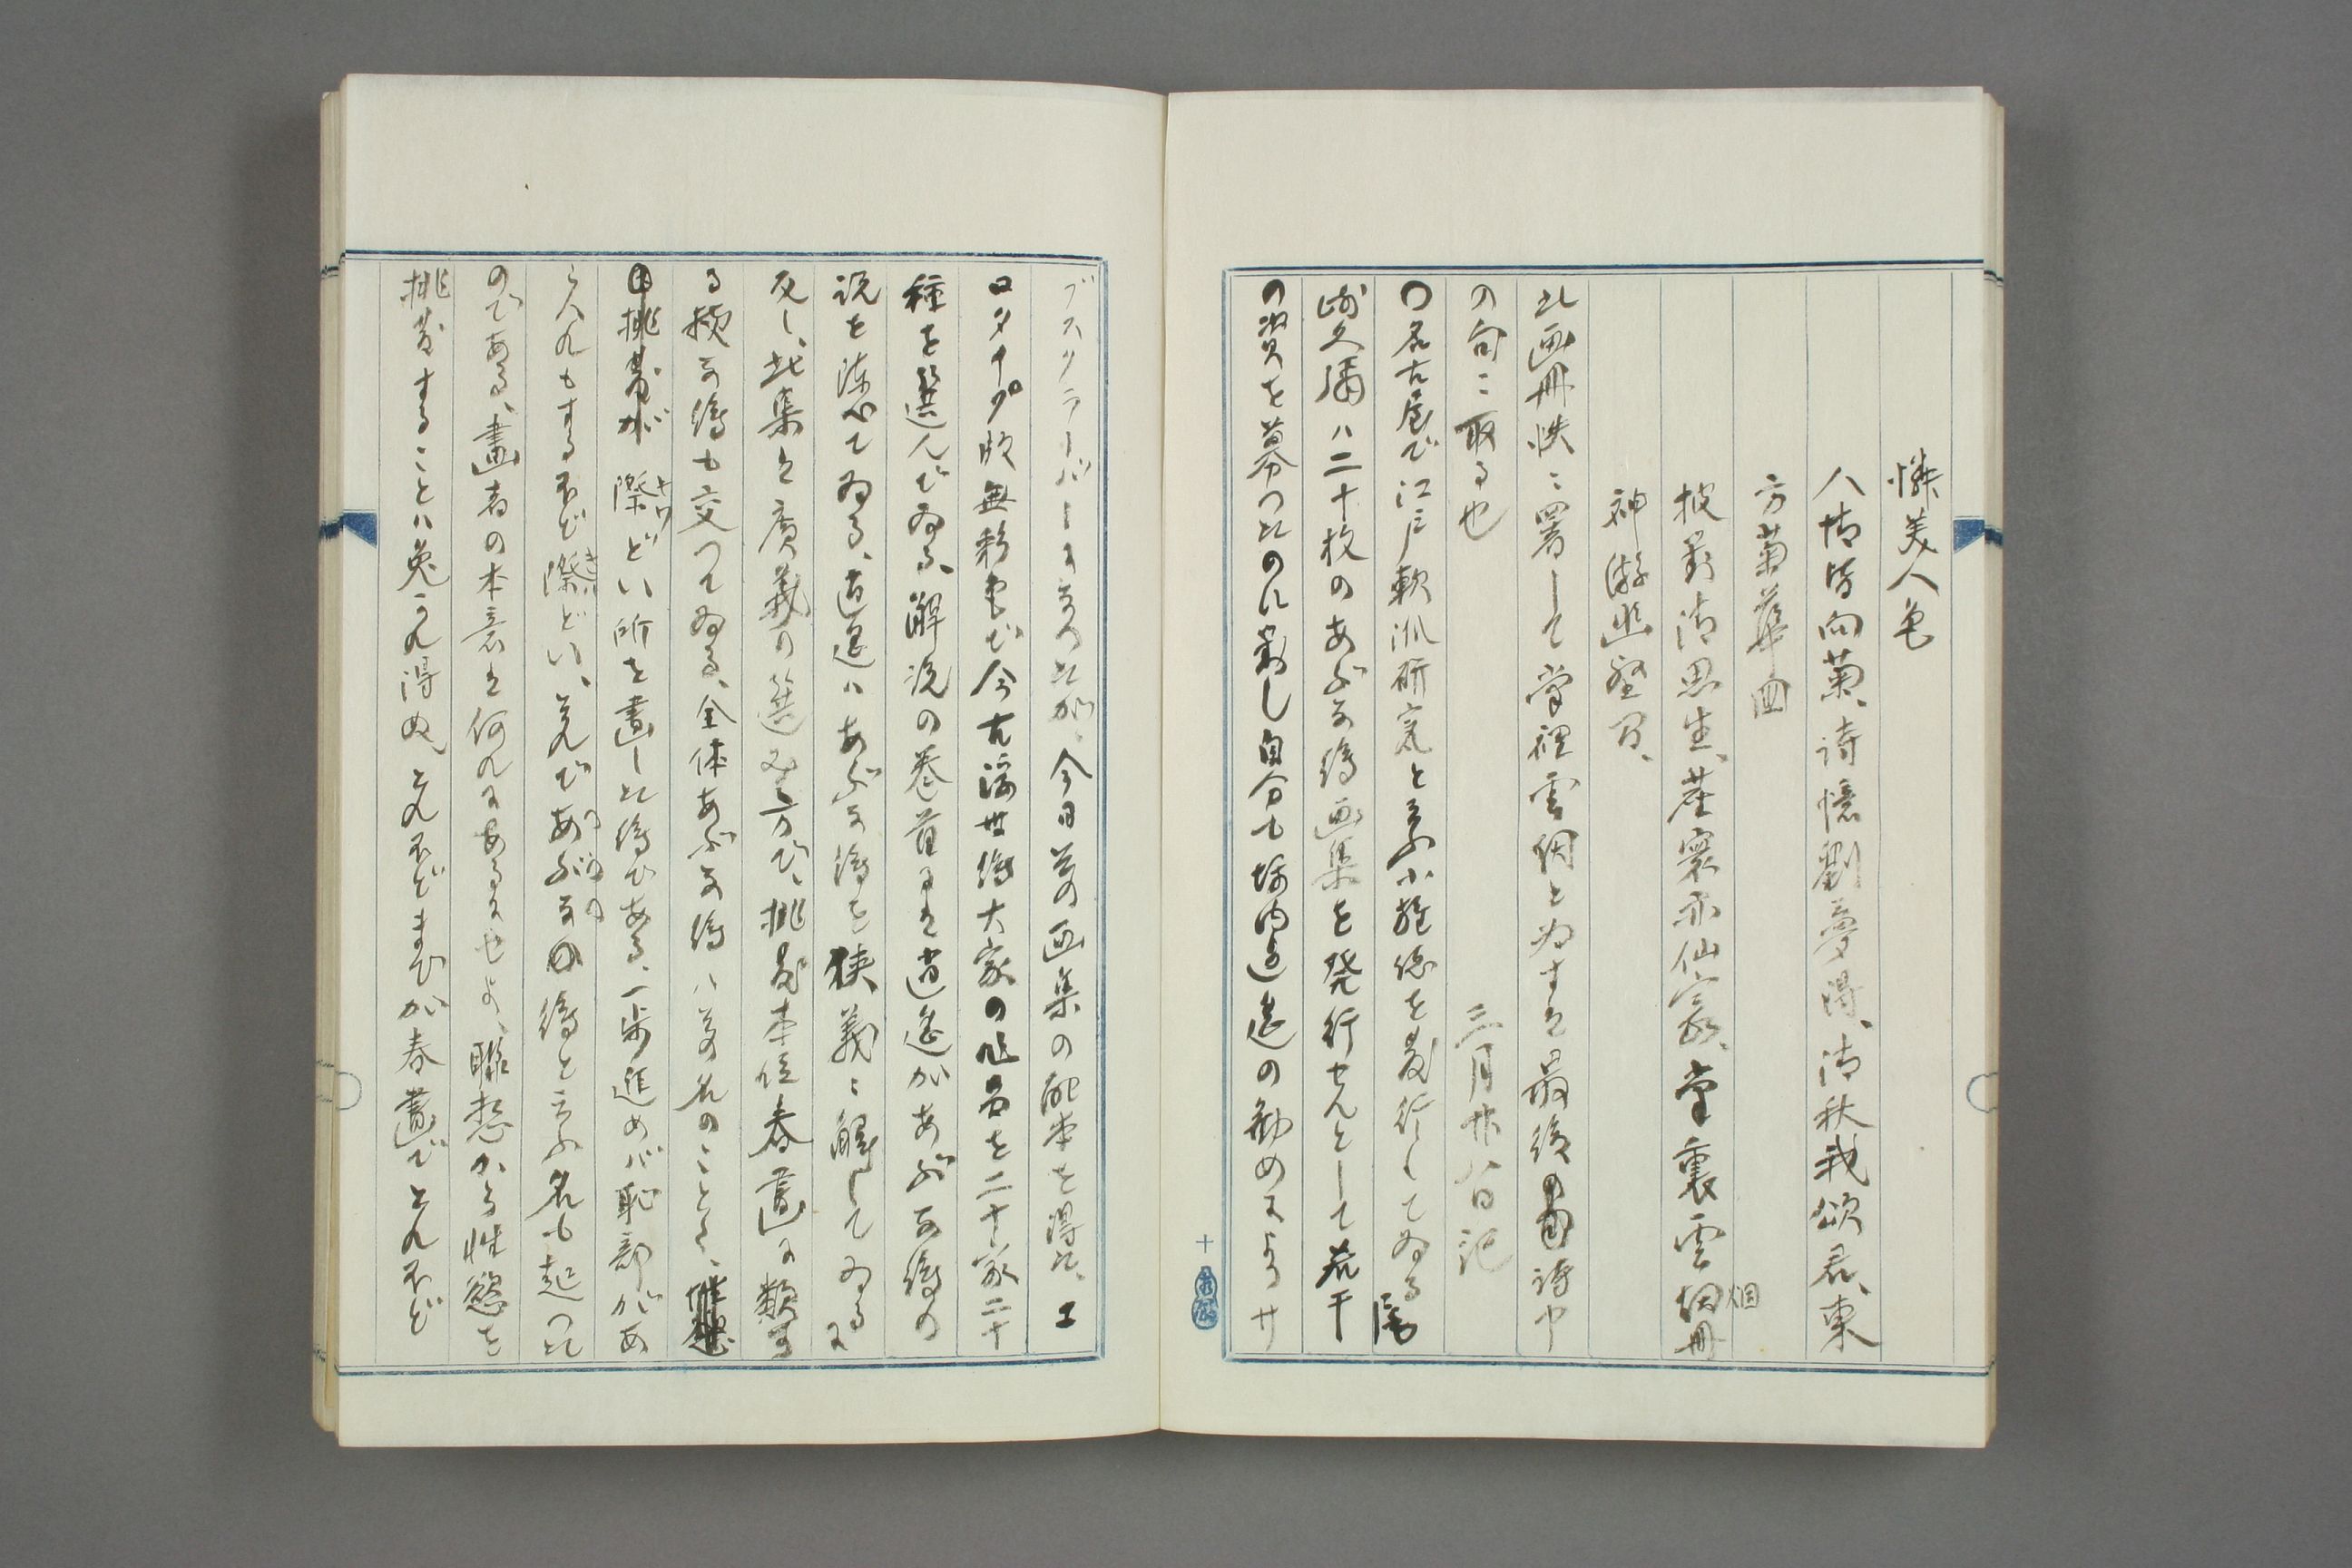 憐美人色
人情皆向菊、詩憶劉夢得、清秋我頌君、東
方菊華凾
披對清思生、塵寰亦仙家、堂裏雲烟冊
神游幽壑間、
此画冊帙ニ署して堂裡雲烟とあすは最後の詩中
の句ニ取る也
三月廿八日記
〇名古屋で江戸軟派研究と云ふ小雑誌を発行してゐる尾
崎久彌ハ二十枚のあぶな絵画集を発行せんとして若干
の資を募つたのに対し自分も坪内逍遥の勧めによりサ
ブスクライバーになつたが、今日其の画集の配本を得た、コ
ロタイプ版無彩色だが今古浮世絵大家の作品を二十家二十
種を選んでゐる、解説の巻首には逍遥があぶな絵の
説を添へてゐる、逍遥ハあぶな絵を狭義ニ解してゐるに
反し、此集は広義の選み方で、挑発本位春畫に類す
る様な絵も交つてゐる、全体あぶな絵ハ其の名のごとく、
挑発が際どい所を畫した絵である、一歩進めバ恥部があ
らハれもするほど際どい、其れであぶなの絵と云ふ名も起つた
のである、畫者の本意は何れにあるにせよ、聯想から性慾を
挑発することハ免かれ得ぬ、とれほどまでが春畫でとれほど